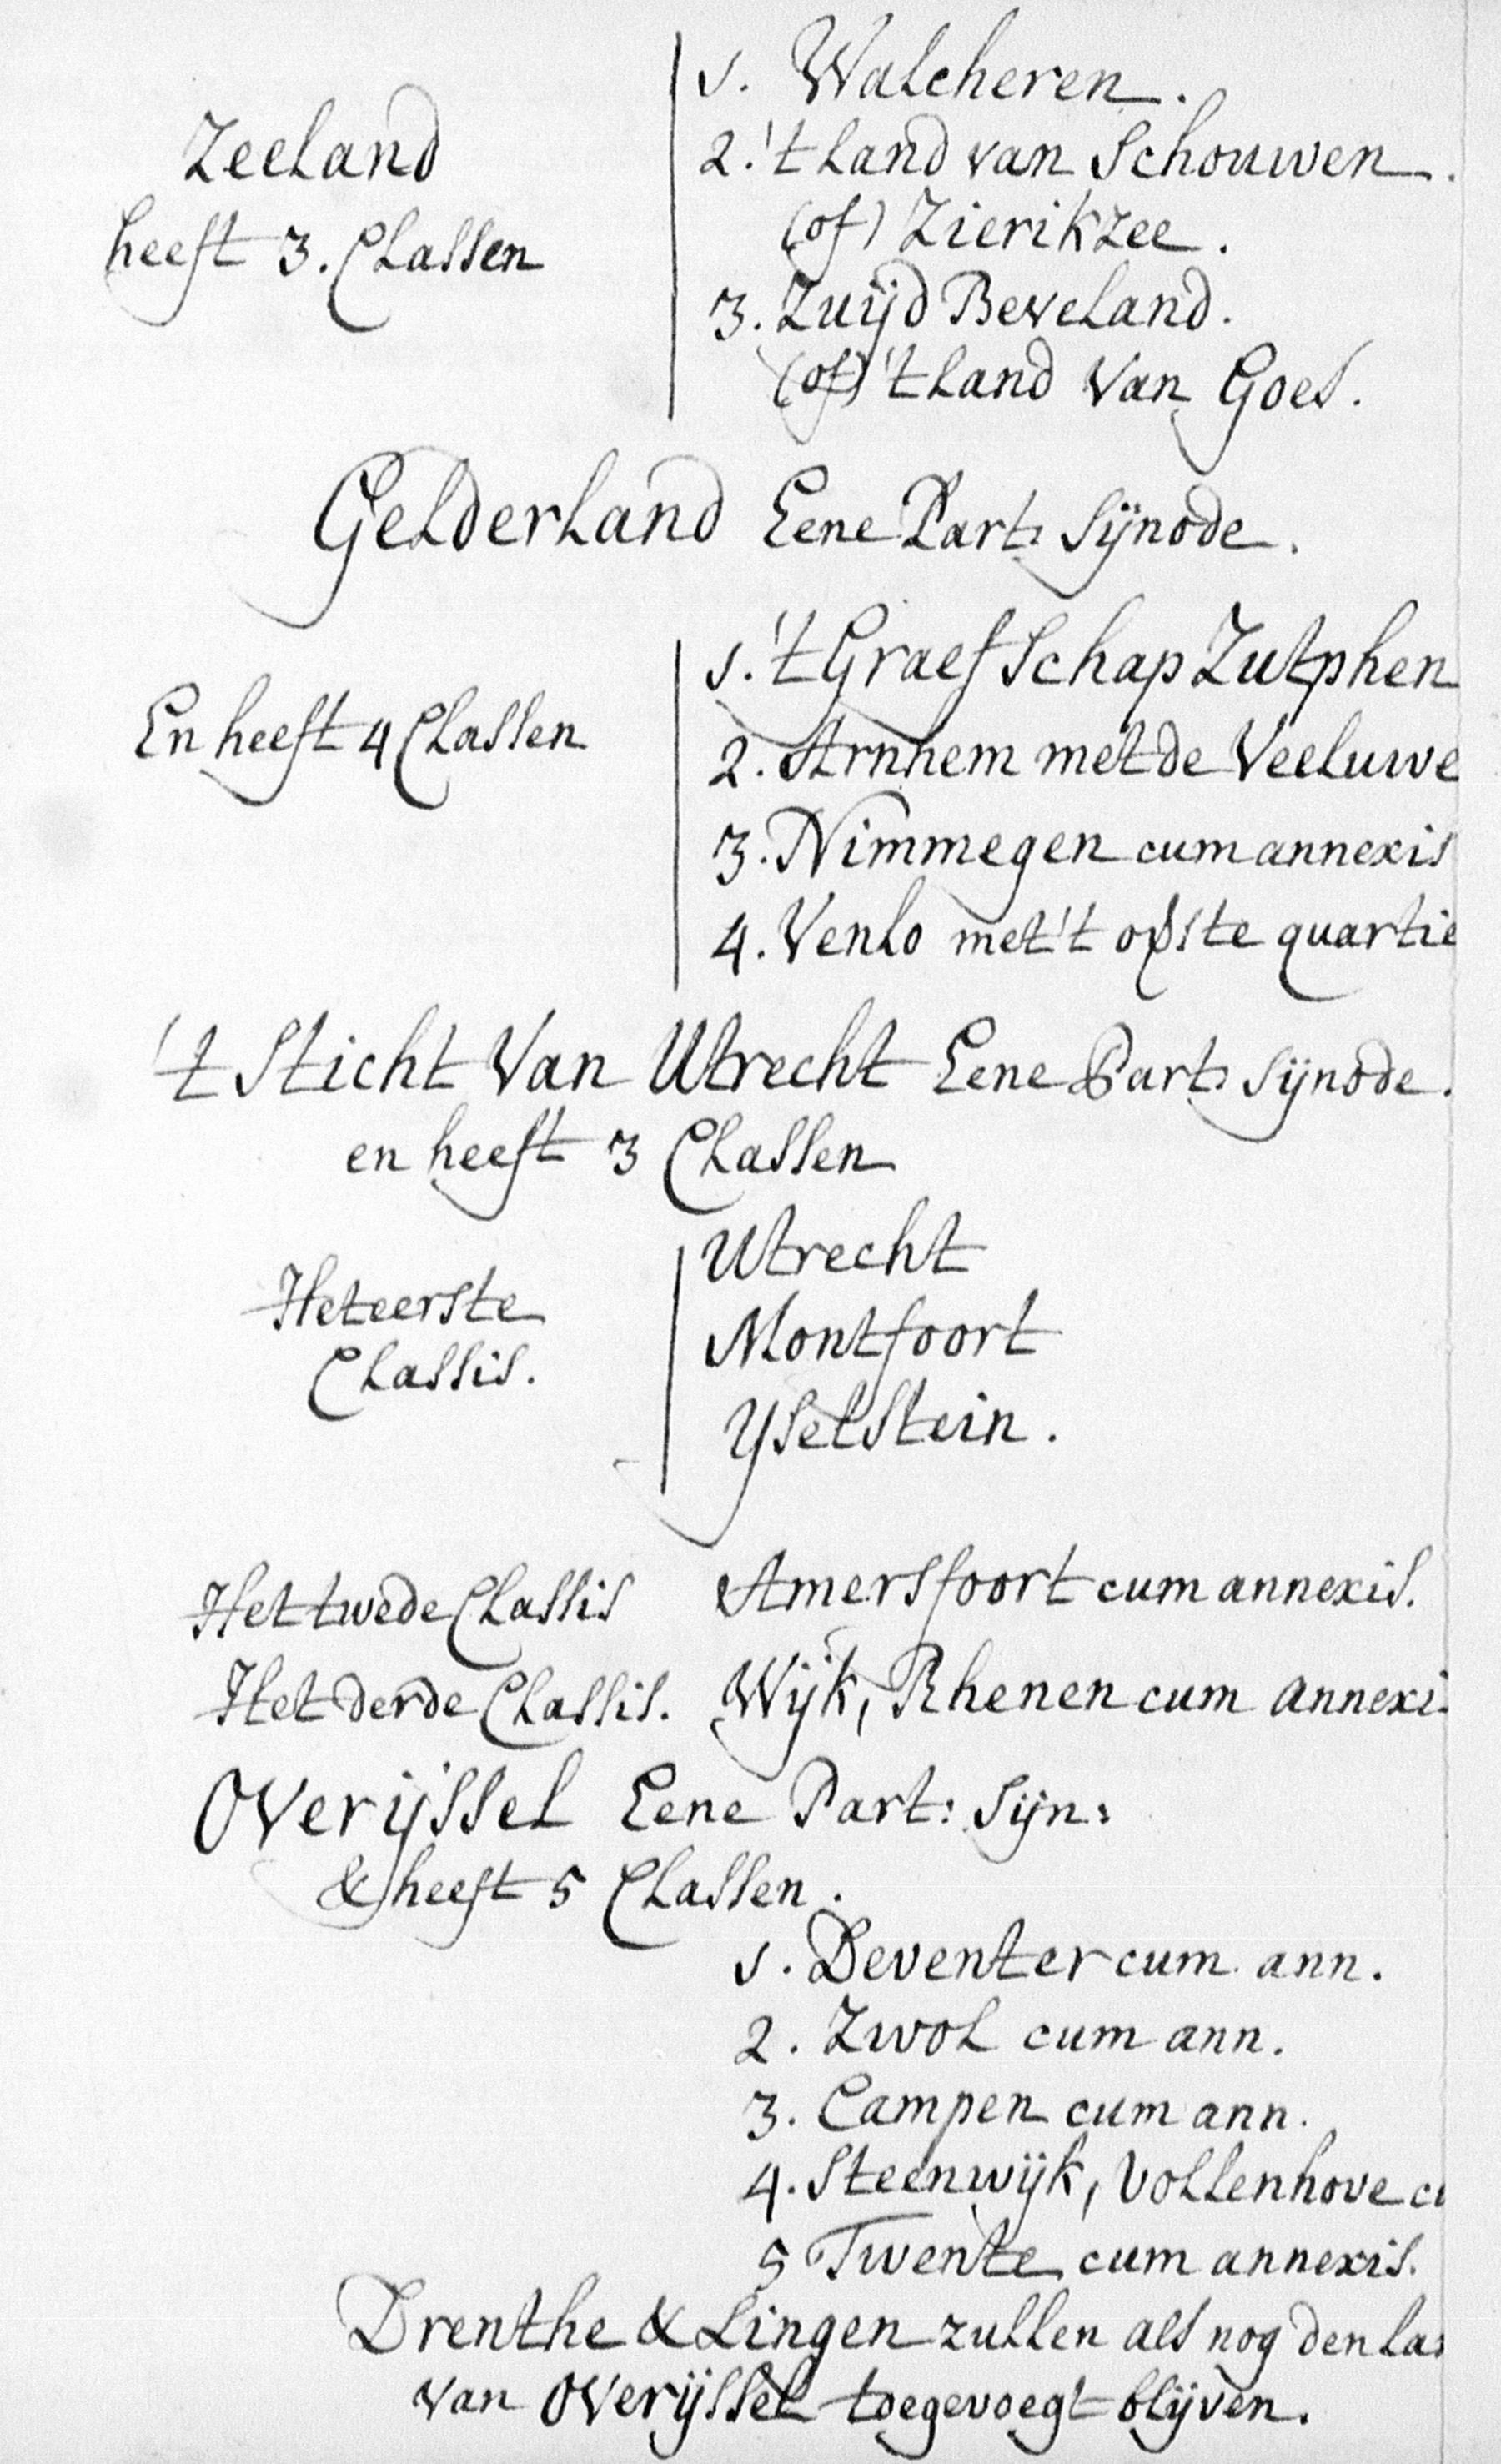 Zeeland
heeft 3. Classen
1. Walcheren.
2. 't Land van Schouwen.
(of) Zierikzee.
3. Zuÿd Beveland.
(of) 't Land van Goes.
Gelderland Eene Part: Sÿnode.
En heeft 4 Classen
1. 't Graefschap Zutphen
2. Arnhem met de Veeluwe
3. Nimmegen cum annexis
4. Venlo met 't opste quartie
't Sticht van Utrecht Eene Part: Sijnode.
en heeft 3 Classen
Het eerste
Classis.
Utrecht
Montfoort
Yselstein.
Het twede Classis Amersfoort cum annexis.
Het derde Classis. Wijk, Rhenen cum annexi
Overijssel Eene Part: Sijn:
& heeft 5 Classen.
1. Deventer cum ann.
2. Zwol cum ann.
3. Campen cum ann.
4. Steenwÿk, Vollenhove cu
5 Twente cum annexis.
Drenthe & Lingen zullen als nog den la
van Overÿssel toegevoegt blÿven.